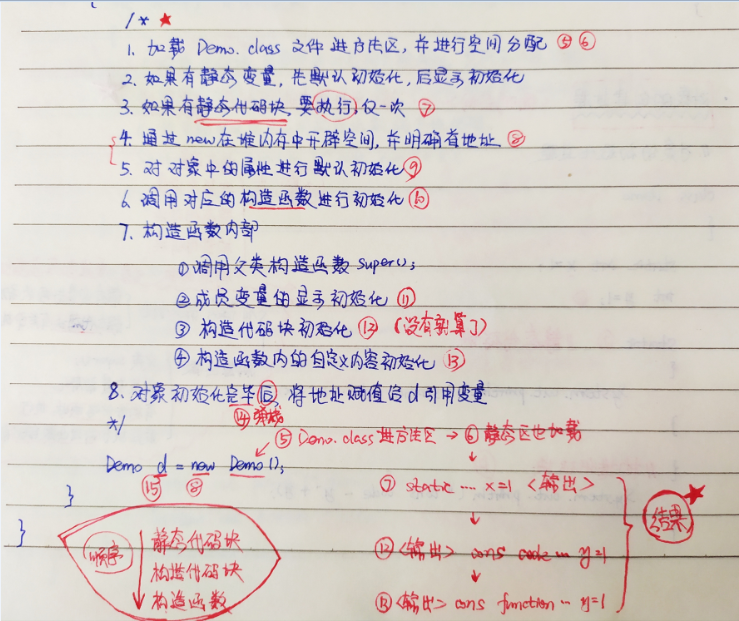 /* ★
1. 加载 Demo.class 文件进方法区, 并进行空间分配 ⑤ ⑥
2. 如果有静态变量, 先默认初始化, 后显示初始化
3. 如果有静态代码块, 要执行, 仅一次 ⑦
4. 通过new在堆内存中开辟空间, 并明确首地址 ⑧
5. 对对象中的属性进行默认初始化 ⑨
6. 调用对应的构造函数进行初始化 ⑩
7. 构造函数内部
①调用父类构造函数super();
②成员变量的显示初始化 ⑪
③构造代码块初始化 ⑫ (没有就算了)
④构造函数内的自定义内容初始化 ⑬
8. 对象初始化完毕后, 将地址赋值给d引用变量
*/
⑭弹栈
⑤ Demo.class进方法区 → ⑥静态区也加载
Demo d = new Demo();
⑮ ⑧
⑦ static … x=1 <输出>
}
结果
}
顺序
静态代码块
构造代码块
构造函数
⑫<输出> cons code … y=1
⑬<输出> cons function … y=1